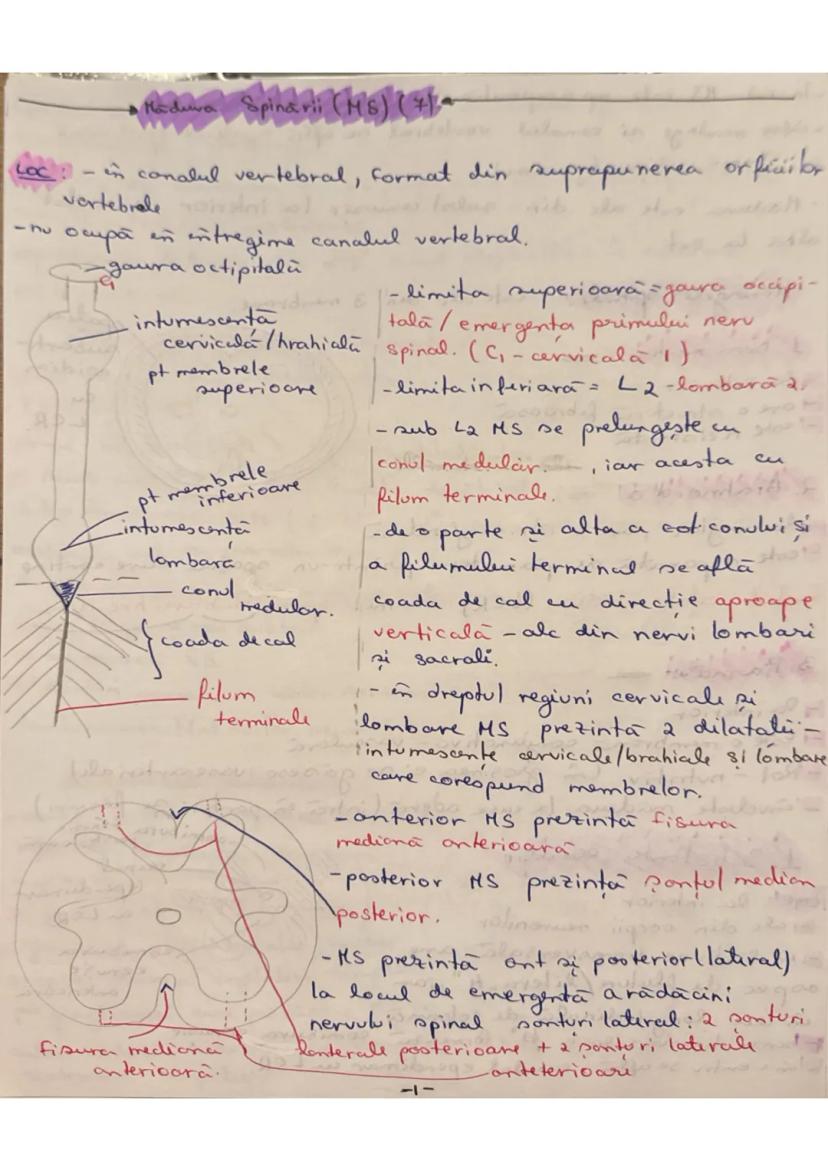 Măduva Spinării (MS) (7)
LOC: - în canalul vertebral, format din suprapunerea orficiilor
vertebrele
- nu ocupă în întregime canalul vertebral.
gaura octipitală
C1
intumescență
cervicală/brahială
pt membrele
superioare
pt membrele
inferioare
intumescență
lombară
conul
medular.
coada de cal
filum
terminale
- limita superioară = gaura occipi-
tală / emergența primului nerv
spinal. (C1 - cervicală 1)
- limita inferiară = L2 - lombară 2.
- sub L2 MS se prelungește cu
conul medular. , iar acesta cu
filum terminale.
- de o parte și alta a cot conului și
a filumului terminal se află
coada de cal cu direcție aproape
verticală - alc din nervi lombari
și sacrali.
- în dreptul regiuni cervicale și
lombare MS prezintă 2 dilatații -
intumescențe cervicale/brahiale și lombare
care corespund membrelor.
- anterior MS prezintă fisura
mediană anterioară
- posterior MS prezintă șanțul median
posterior.
- MS prezintă ant și posterior (lateral)
la locul de emergență a rădăcini
nervului spinal șanturi lateral: 2 șanturi
lanterale posterioare + 2 șanțuri laterale
anteterioare
fisura mediană
anterioară.
-1-